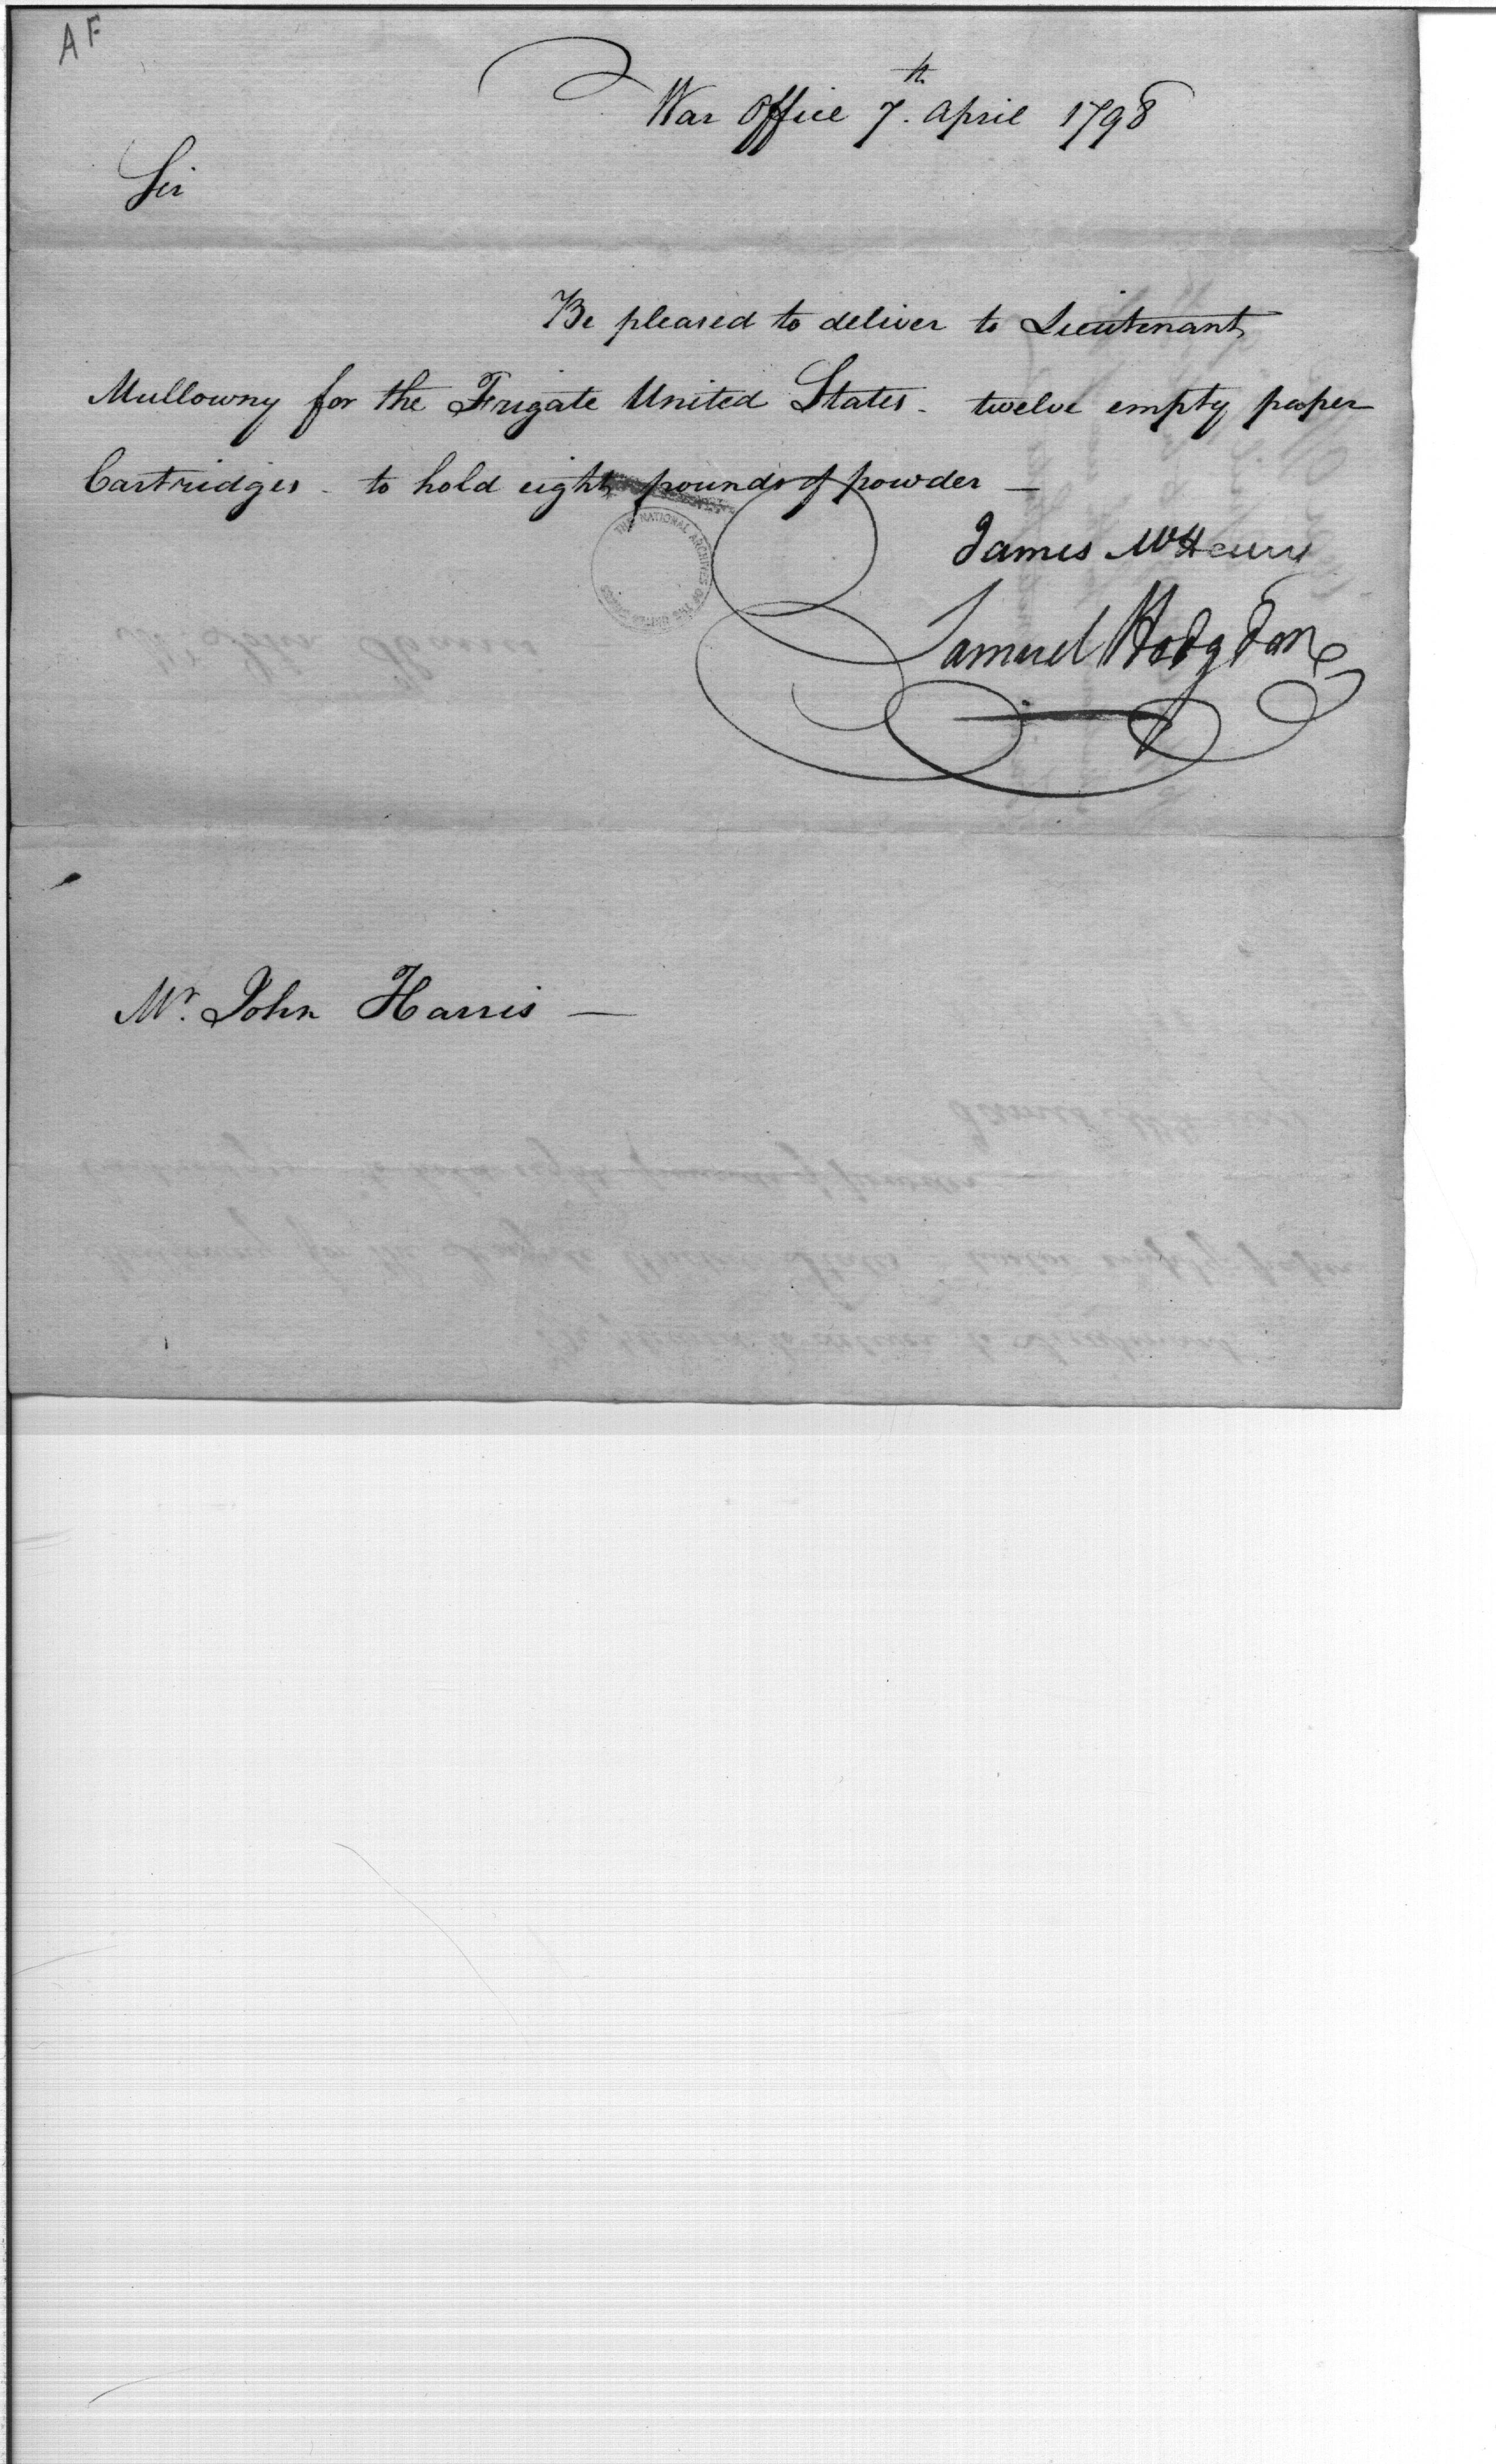 AF
War Office 7th. April 1798
Sir
Be pleased to deliver to Lieutenant
Mullowny for the Frigate United States - twelve empty paper
Cartridges - to hold eight pounds of powder —
THE NATIONAL ARCHIVES OF THE UNITED STATES
James McHenry
Samuel Hodgdon
Mr. John Harris —